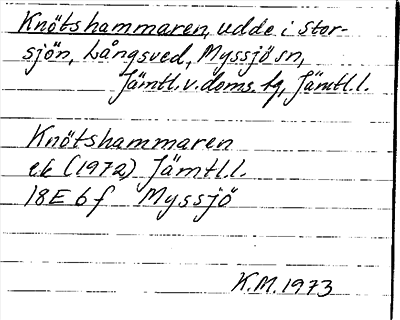 Knötshammaren, udde i Stor-
sjön, Långsved, Myssjö sn,
Jämtl. v. doms. tg, Jämtl. l.
Knötshammaren
ek (1972) Jämtl. l.
18E 6f Myssjö
K.M. 1973